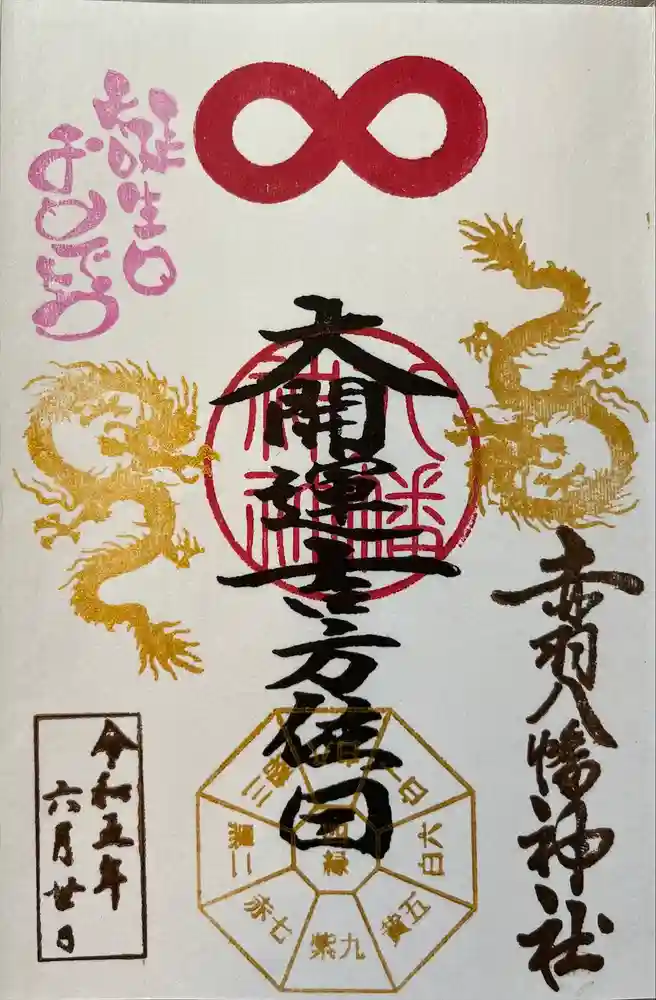 お誕生日
おめでとう
大開運吉方位図
八幡
神社
赤羽八幡神社
令和五年
六月廿日
三碧
一白
二黒
四緑
六白
七赤
九紫
五黄